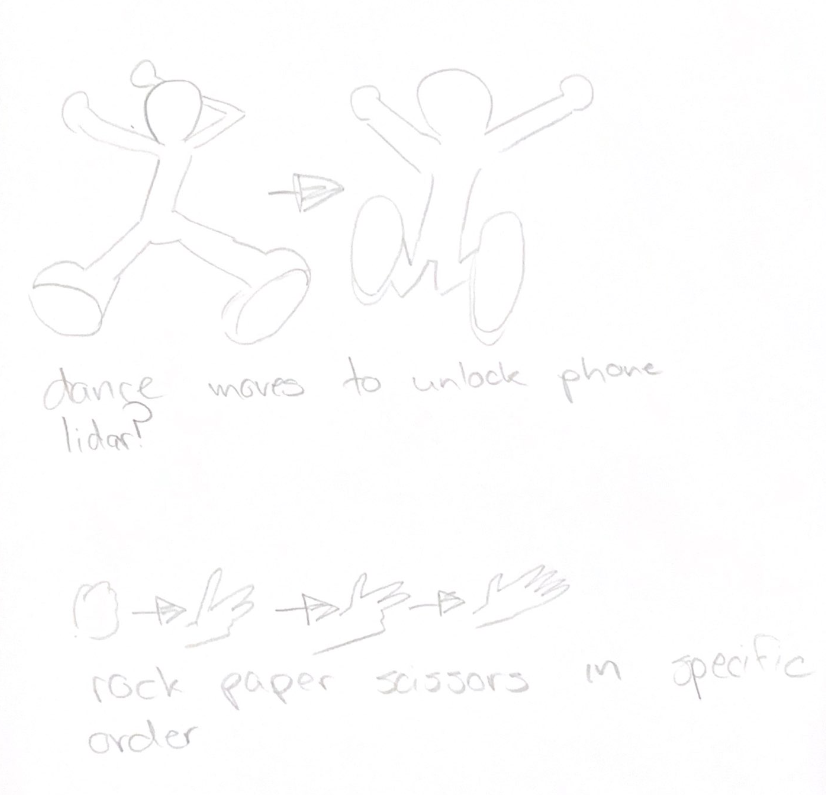 dance moves to unlock phone
lidar?
rock paper scissors in specific
order